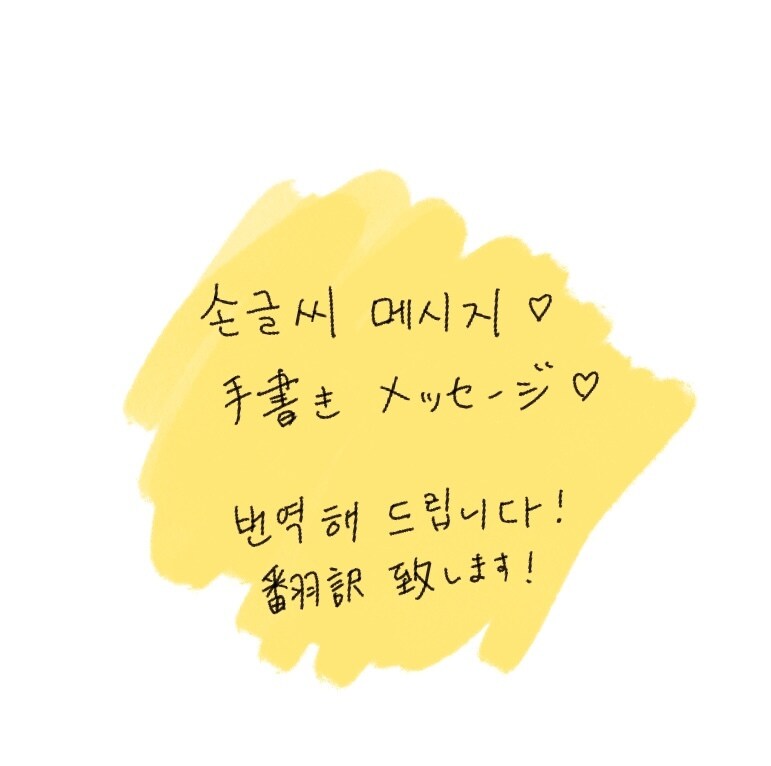 손글씨 메시지♡
手書き メッセージ♡
번역해 드립니다!
翻訳 致します!